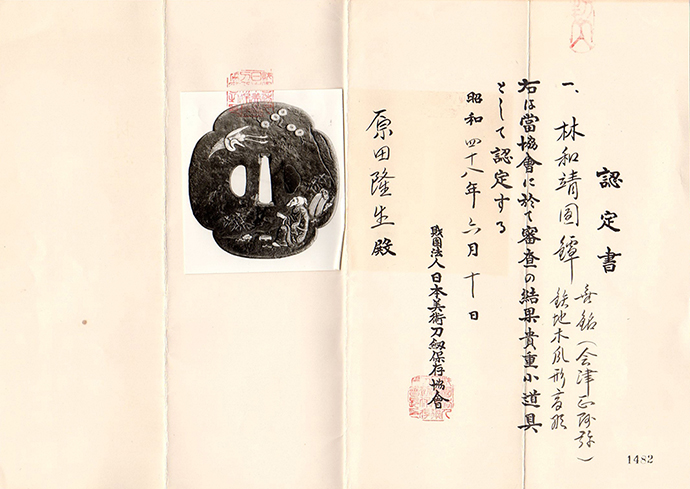 認定書
一、林和靖図鐔 無銘（会津正阿弥）
鉄地木瓜形高彫
右は當協會に於て審査の結果貴重小道具
として認定する
昭和四十八年六月十日
財団法人日本美術刀剣保存協會
原田隆生殿
1482